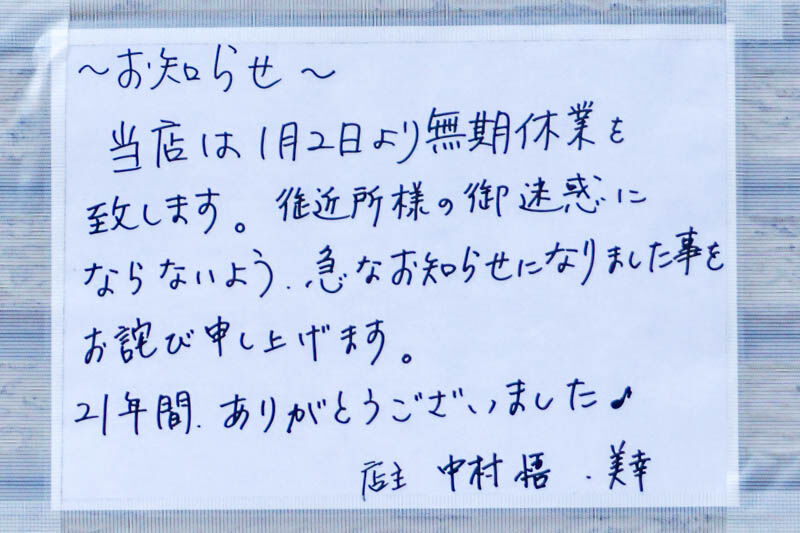 ～お知らせ～
当店は1月2日より無期休業を
致します。御近所様の御迷惑に
ならないよう、急なお知らせになりました事を
お詫び申し上げます。
21年間、ありがとうございました♪
店主 中村悟・美幸